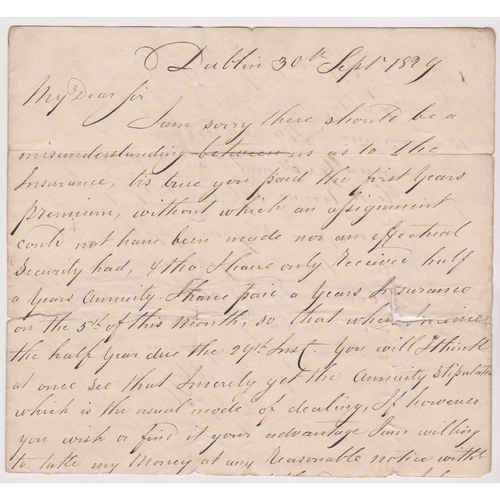 Dublin 30th Sept 1829
My Dear Sir
I am sorry there should be a
misunderstanding between us as to the
Insurance, tis true you paid the first Years
premium, without which an assignment
could not have been made nor an effectual
Security had, & tho I have only received half
a Years Annuity. I have paid a Years Insurance
on the 5th of this Month, so that when I receive
the half Year due the 29th Inst. You will I think
at once see that I merely get the Annuity Stipulated
which is the usual mode of dealing, If however
you wish or find it your advantage I am willing
to take my Money at any reasonable notice with